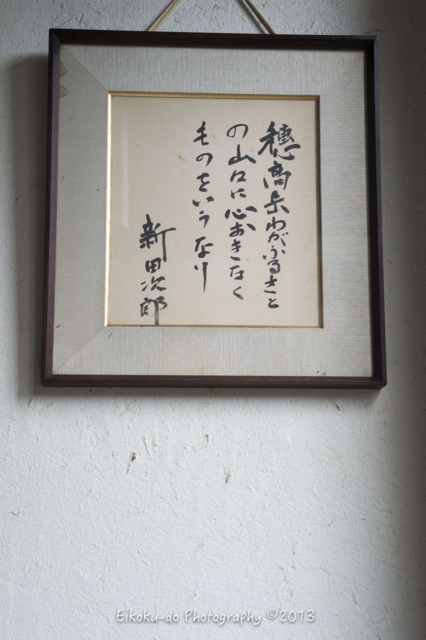 穂高岳わがふるさと
の山々に心おきなく
ものをいうなり
新田次郎
Eikoku-do Photography ©2013